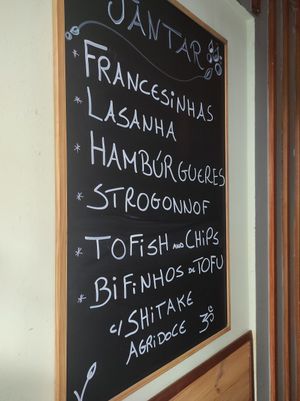 JANTAR
* FRANCESINHAS
* LASANHA
* HAMBÚRGUERES
* STROGONNOF
* TOFISH AND CHIPS
* BIFINHOS DE TOFU
c/ SHITAKE
AGRIDOCE ॐ